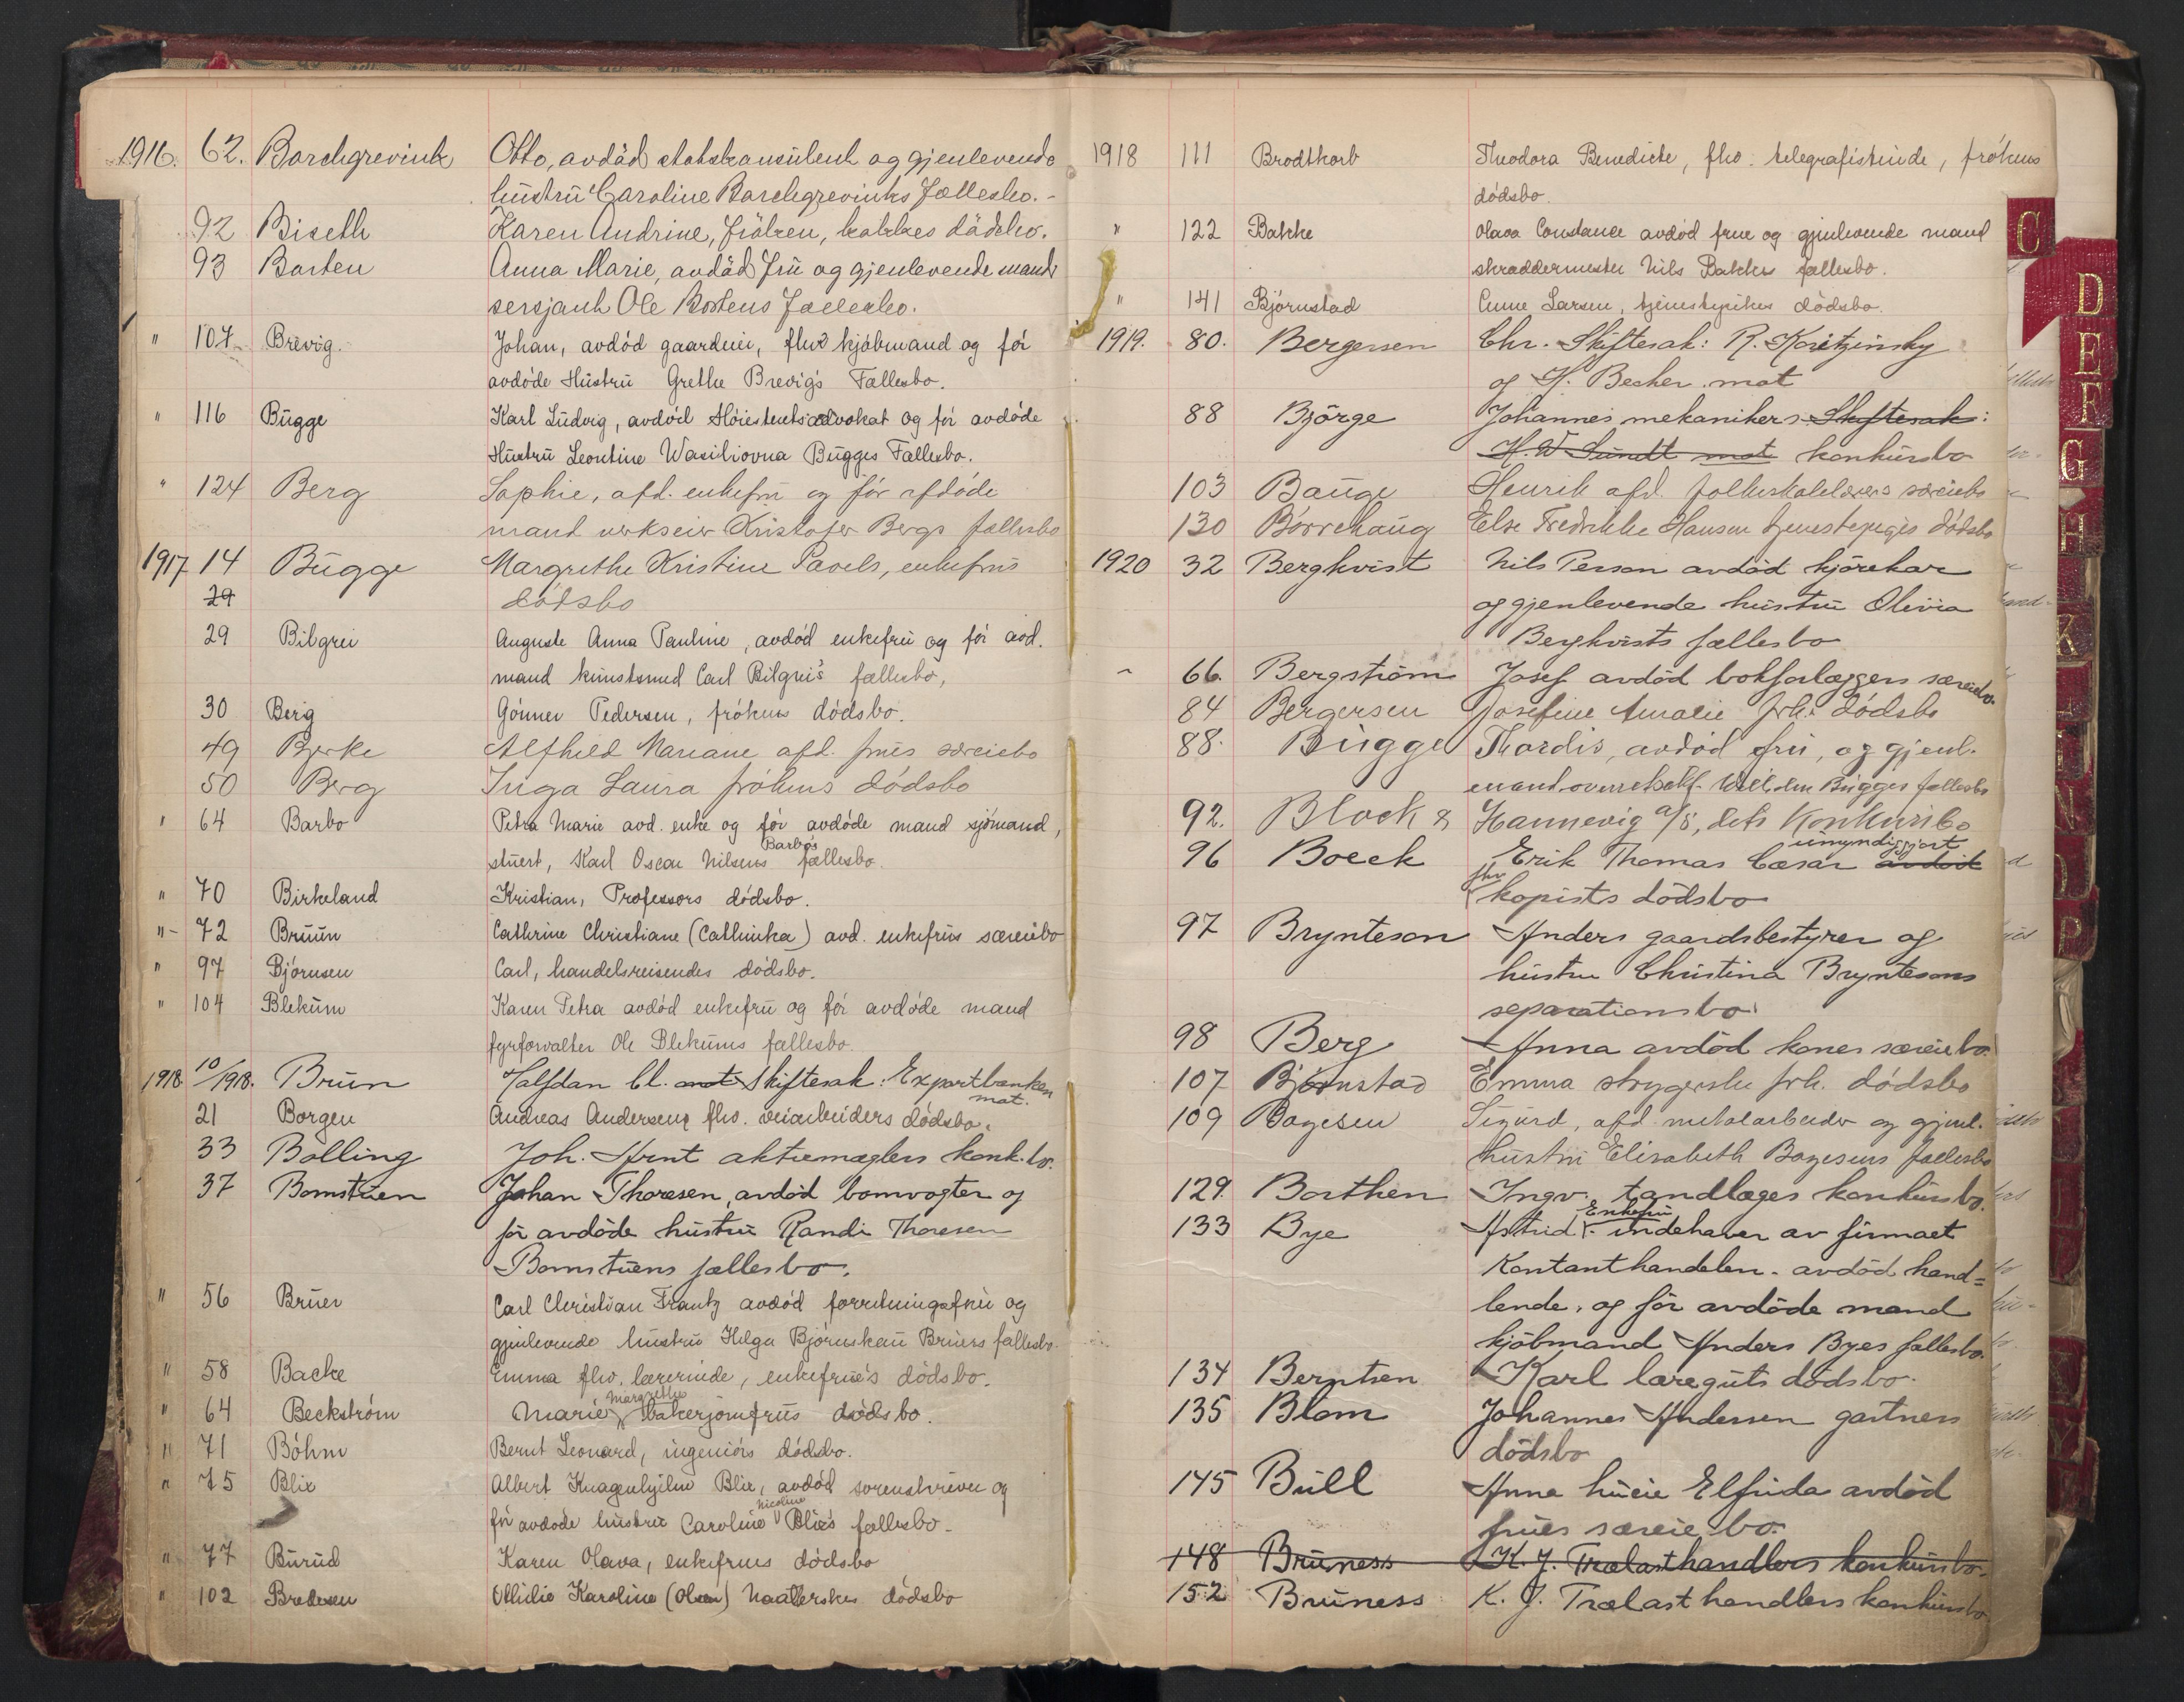 1916. 62. Borchgrevink Otto, avdöd statskonsulent og gjenlevende
hustru Caroline Borchgrevinks Fællesbo.-
92 Biseth Karen Andrine, fröken, kokkes dödsbo.
93 Borten Anna Marie, avdöd fru og gjenlevende mands
sersjant Ole Bortens Fællesbo.
" 107 Brevig. Johan, avdöd gaardeier, fhv kjöbmand og för
avdöde Hustru Grethe Brevig's Fællesbo.
" 116 Bugge Karl Ludvig, avdöd Höiesteretsadvokat og för avdöde
Hustru Leontine Wasiliovna Bugges Fællesbo.
" 124 Berg Sophie, afd. enkefru og för afdöde
mand verkseier Kristofer Bergs fællesbo
1917 14 Bugge Margrethe Kristine Pavels, enkefrus
29 dödsbo
29 Bilgrei Auguste Anna Pauline, avdöd enkefru og för avd.
mand kunstsmed Carl Bilgrei's fællesbo,
30 Berg Gönner Pedersen, frökens dödsbo.
49 Bjerke Alfhild Mariane afd. frues særeiebo
50 Berg Inga Laura frökens dödsbo
" 64 Barbo Petra Marie avd. enke og för avdöde mand sjömand,
stuert, Karl Oscar Nilsens Barbo's fællesbo.
" 70 Birkeland Kristian, Professors dödsbo.
"- 72 Bruun Cathrine Christiane (Cathinka) avd. enkefrus særeiebo
" 97 Björnsen Carl, handelsreisendes dödsbo.
" 104 Blekum Karen Petra avdöd enkefru og för avdöde mand
fyrforvalter Ole Blekums fællesbo.
1918 10/1918. Brun Halfdan Cl. mot Skiftesak: Exportbanken
mot.
21 Borgen Andreas Andersen, fhv. veiarbeiders dödsbo.
33 Bolling Joh. Arnt aktiemæglers konk.bo.
37 Bomstuen Johan Thoresen, avdöd bomvogter og
för avdöde hustru Randi Thoresen
Bomstuens fællesbo.
" 56 Bruer Carl Christian Frantz avdöd forretningsfrer og
gjenlevende hustru Helga Björnskau Bruers fællesbo.
" 58 Backe Emma fhv. lærerinde, enkefrue's dödsbo.
" 64 Beckström Marie Margrethe bakerjomfrus dödsbo.
" 71 Böhm Bernt Leonard, ingeniörs dödsbo.
" 75 Blix Albert Knagenhjelm Blix, avdöd sorenskriver og
för avdöde hustru Caroline Nicoline Blix's fællesbo.
" 77 Burud Karen Olava, enkefrues dödsbo
" 102 Bredesen Ottilie Karoline (Olsen) Naatlerskes dödsbo
1918 111 Brodtkorb Theodora Benedicte, fhv. telegrafistinde, frökens
dödsbo.
" 122 Bakke Olava Constance avdöd frue og gjenlevende mand
skræddermester Nils Bakkes fællesbo.
" 141 Björnstad Anne Larsen, tjenestepikes dödsbo.
1919. 80. Bergersen Chr. Skiftesak: R. Koritzinsky
og H. Becher. mot
88 Björge Johannes mekanikers Skiftesak:
H. W Sundt mot konkursbo
103 Bauge Henrik afd. folkeskolelærers særeiebo
130 Börrehaug Else Fredrikke Hansen tjenestepiges dödsbo
1920 32 Berghvist Nils Person avdöd kjörekar
og gjenlevende hustru Olivia
Berghvists fællesbo
" 66. Bergström Josef avdöd bokforlæggers særeiebo.
84 Bergersen Josefine Amalie frk. dödsbo
88. Bugge Thordis, avdöd fru, og gjenl.
mand overretssakf. Wilhelm Bugges fællesbo
92. Block & Hannevig a/s, dets Konkursbo
96 Boeck Erik Thomas Cæsar avdöd umyndiggjort
fhv kopists dödsbo
97 Brynteson Anders gaardsbestyrer og
hustru Christina Bryntesons
separationsbo.
98 Berg Anna avdöd kones særeiebo.
107 Björnstad Emma strygerske frk. dödsbo
109 Bogesen Sigurd, afd. metalarbeider og gjenl.
hustru Elisabeth Bogesens fællesbo
129. Borthen Ingv. tandlæges konkursbo.
133 Bye Astrid Enkefru - indehaver av firmaet
Kontanthandelen - avdöd hand=
lende. og för avdöde mand
kjöbmand Anders Byes fællesbo.
134 Berntsen Karl læreguts dödsbo.
135 Blom Johannes Andersen gartners
dödsbo
145 Bull Anna Elfrida avdöd
frues særeie bo.
148 Bruness K. J. Trælasthandlers konkursbo.
152 Bruness K. J. Trælasthandlers konkursbo.
C
D
E
F
G
H
K
L
N
O
P